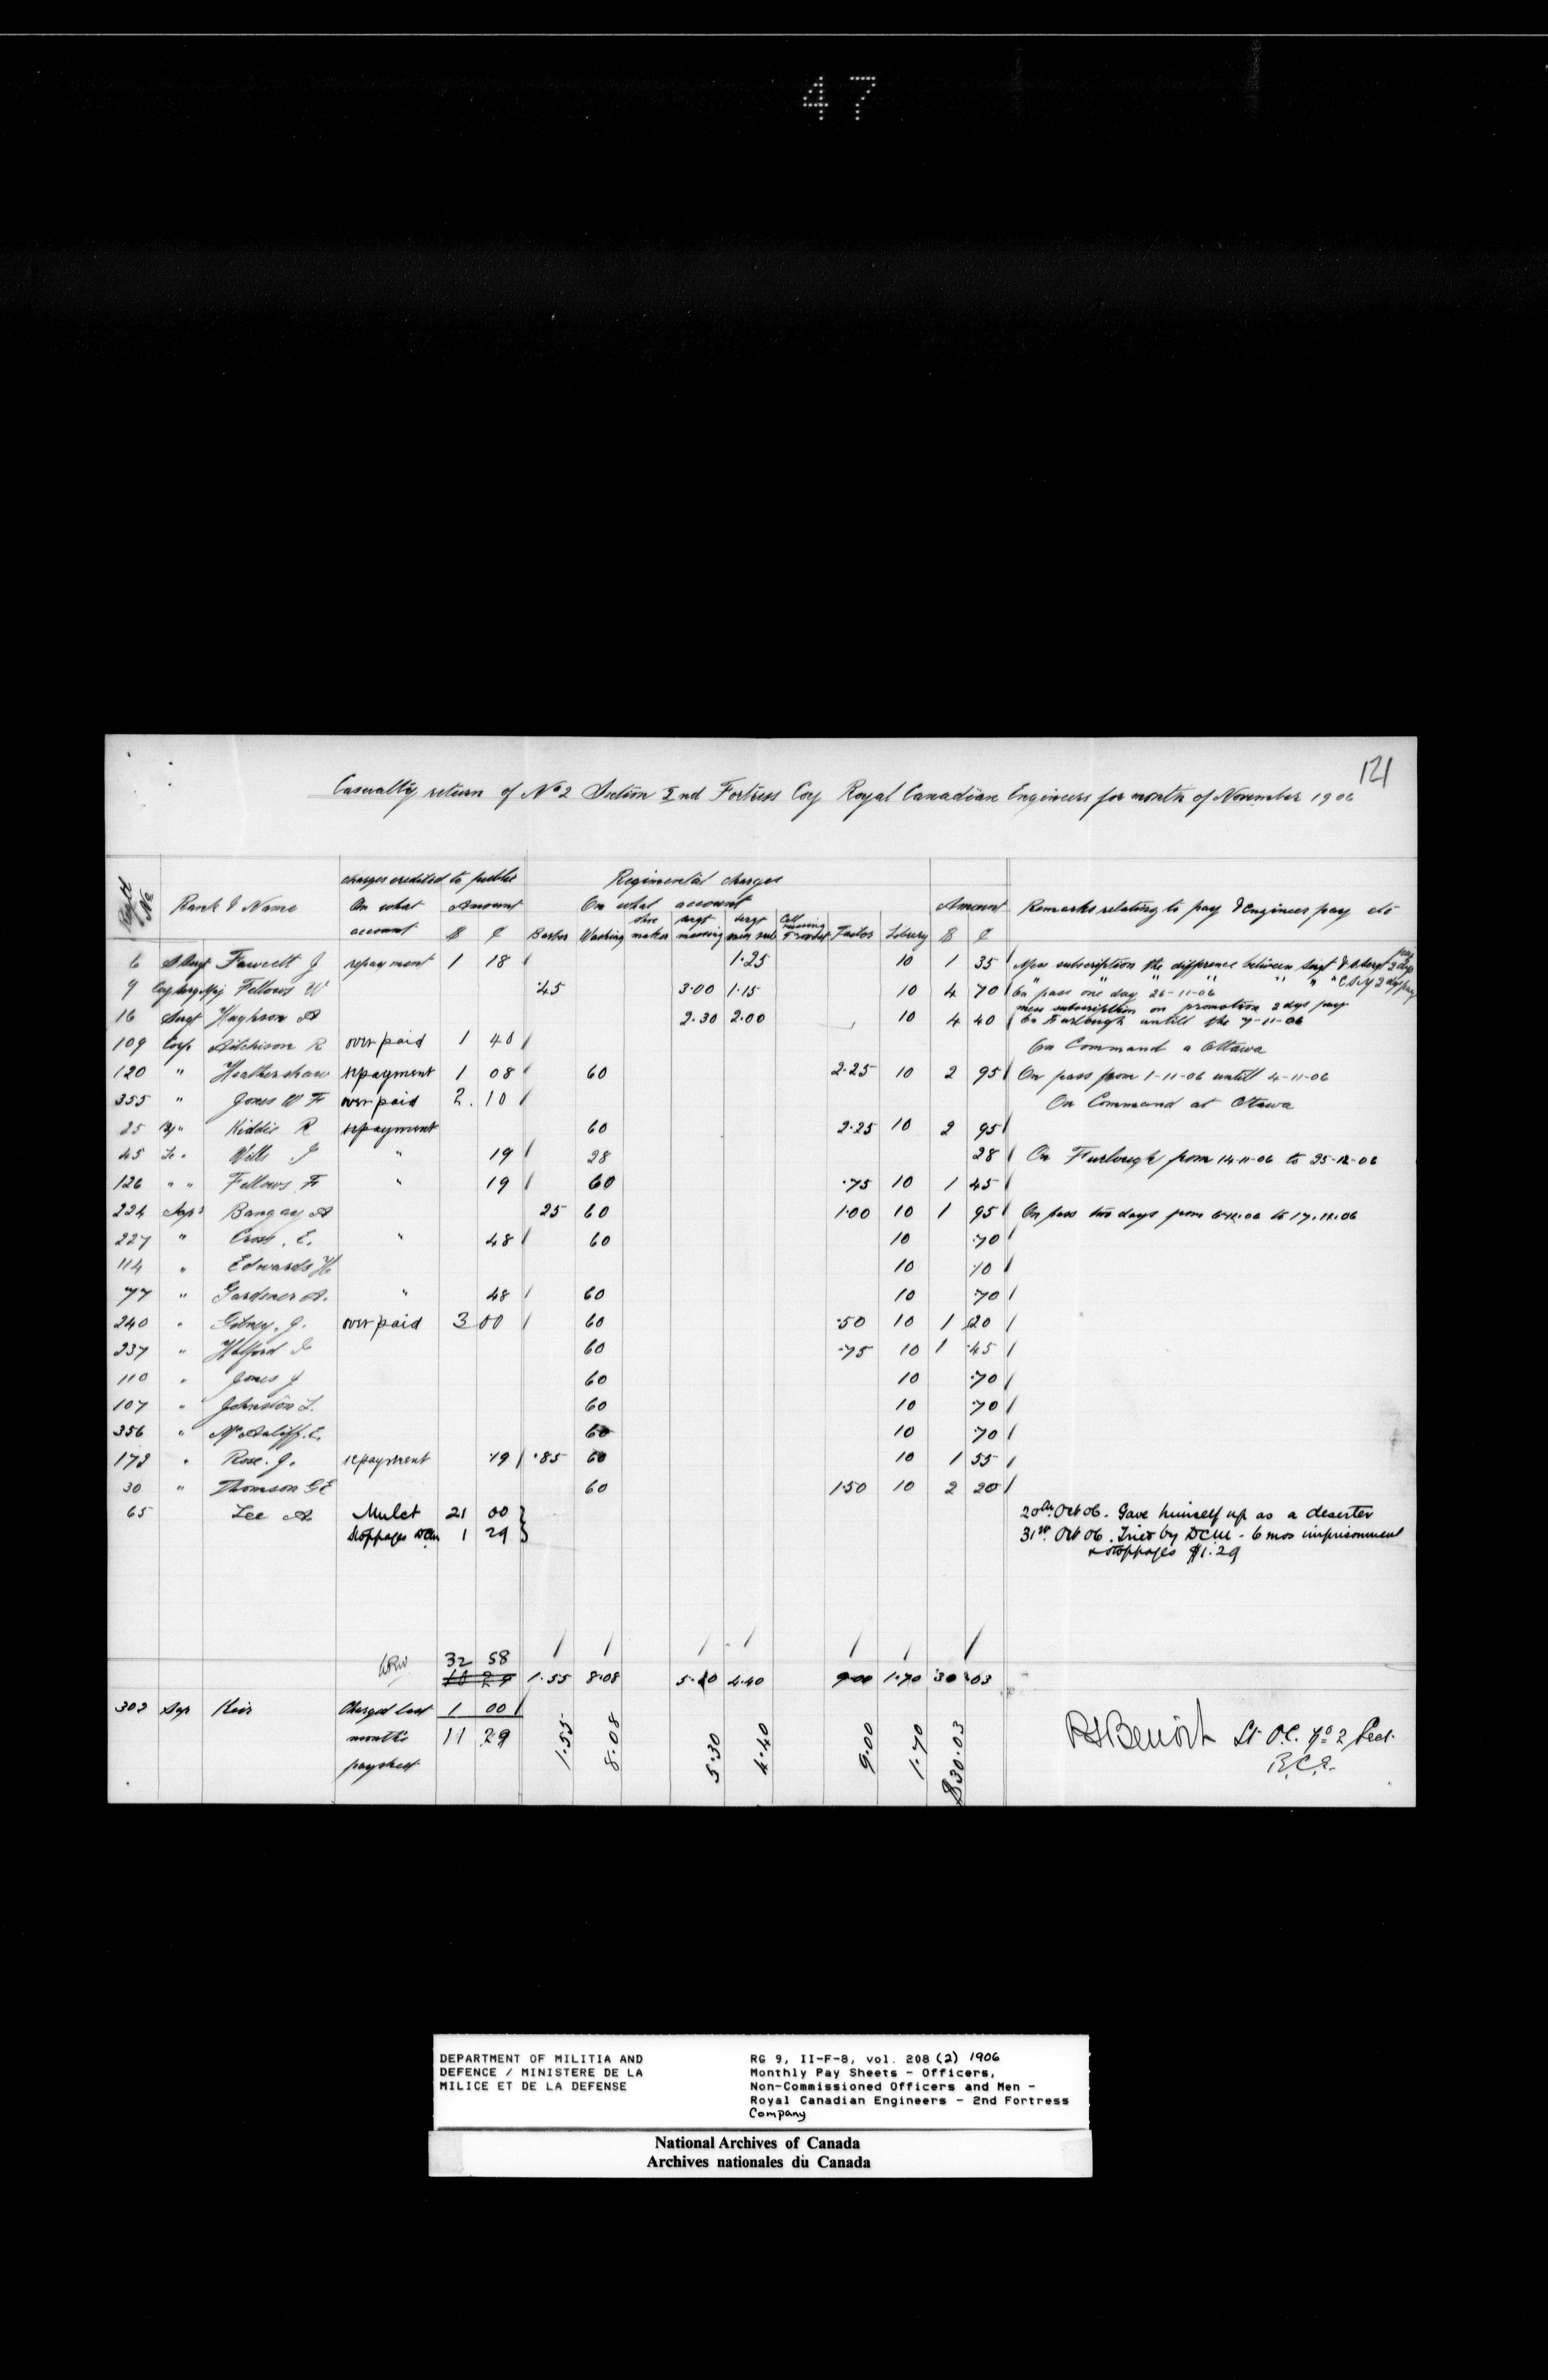 47
121
Casualty return of No 2 Section 2nd Fortress Coy Royal Canadian Engineers for month of November 1906
Regtl No Rank & Name charges credited to public On what account Amount $ ¢ Regimental charges On what account Barber Washing shoe maker sergt messing sergt mess sub Tailor Library Amount $ ¢ Remarks relating to pay & Engineer pay etc
6 S Sergt Fawcett J repayment 1 18 1.25 10 1 35 Mess subscription the difference between Sergt & S Sergt 2 days pay
9 Coy Sergt Maj Fellows W .45 3.00 1.15 10 4 70 " " " " " " C.S.M 2 days pay
On pass one day 26-11-06
16 Sergt Hughson A 2.30 2.00 10 4 40 mess subscription on promotion 2 days pay
On Furlough untill the 7-11-06
109 Corp Aitchison R over paid 1 40 On Command a Ottawa
120 " Heathershaw repayment 1 08 60 2.25 10 2 95 On pass from 1-11-06 untill 4-11-06
355 " Jones W F over paid 2.10 On Command at Ottawa
25 2/" Kiddie R repayment 60 2.25 10 2 95
45 Lc " Wells J " 19 28 28 On Furlough from 14-11-06 to 25-12-06
126 " " Fellows F " 19 60 .75 10 1 45
224 Sapr Bangay A 25 60 1.00 10 1 95 On pass two days from to 17.11.06
227 " Cross. E. " 48 60 10 .70
114 " Edwards H 10 10
77 " Gardener A. " 48 60 10 .70
240 " Gibney. J. over paid 3 00 60 .50 10 1 20
237 " Halford 60 .75 10 1 .45
110 " Jones J 60 10 .70
107 " Johnston L. 60 10 .70
356 " McAuliff. E. 60 10 70
172 " Rose. J. repayment 19 .85 60 10 1 55
30 " Thomson G E 60 1.50 10 2 20
65 Lee A Mulct 21 00 20th Oct 06. Gave himself up as a deserter
Stoppages DCM 1 29 31st Oct 06. Tried by DCM - 6 mos imprisonment
& stoppages $1.29
32 58
10 29 1.55 8.08 5.30 4.40 9.00 1.70 30.03
302 Sap Keir Charged last 1 00
months 11 29
paysheet
1.55 8.08 5.30 4.40 9.00 1.70 $30.03
Benoist Lt O.C. No 2 Sect.
R.C.E.
DEPARTMENT OF MILITIA AND
DEFENCE / MINISTERE DE LA
MILICE ET DE LA DEFENSE
RG 9, II-F-8, vol. 208 (2) 1906
Monthly Pay Sheets - Officers,
Non-Commissioned Officers and Men -
Royal Canadian Engineers - 2nd Fortress
Company
National Archives of Canada
Archives nationales du Canada